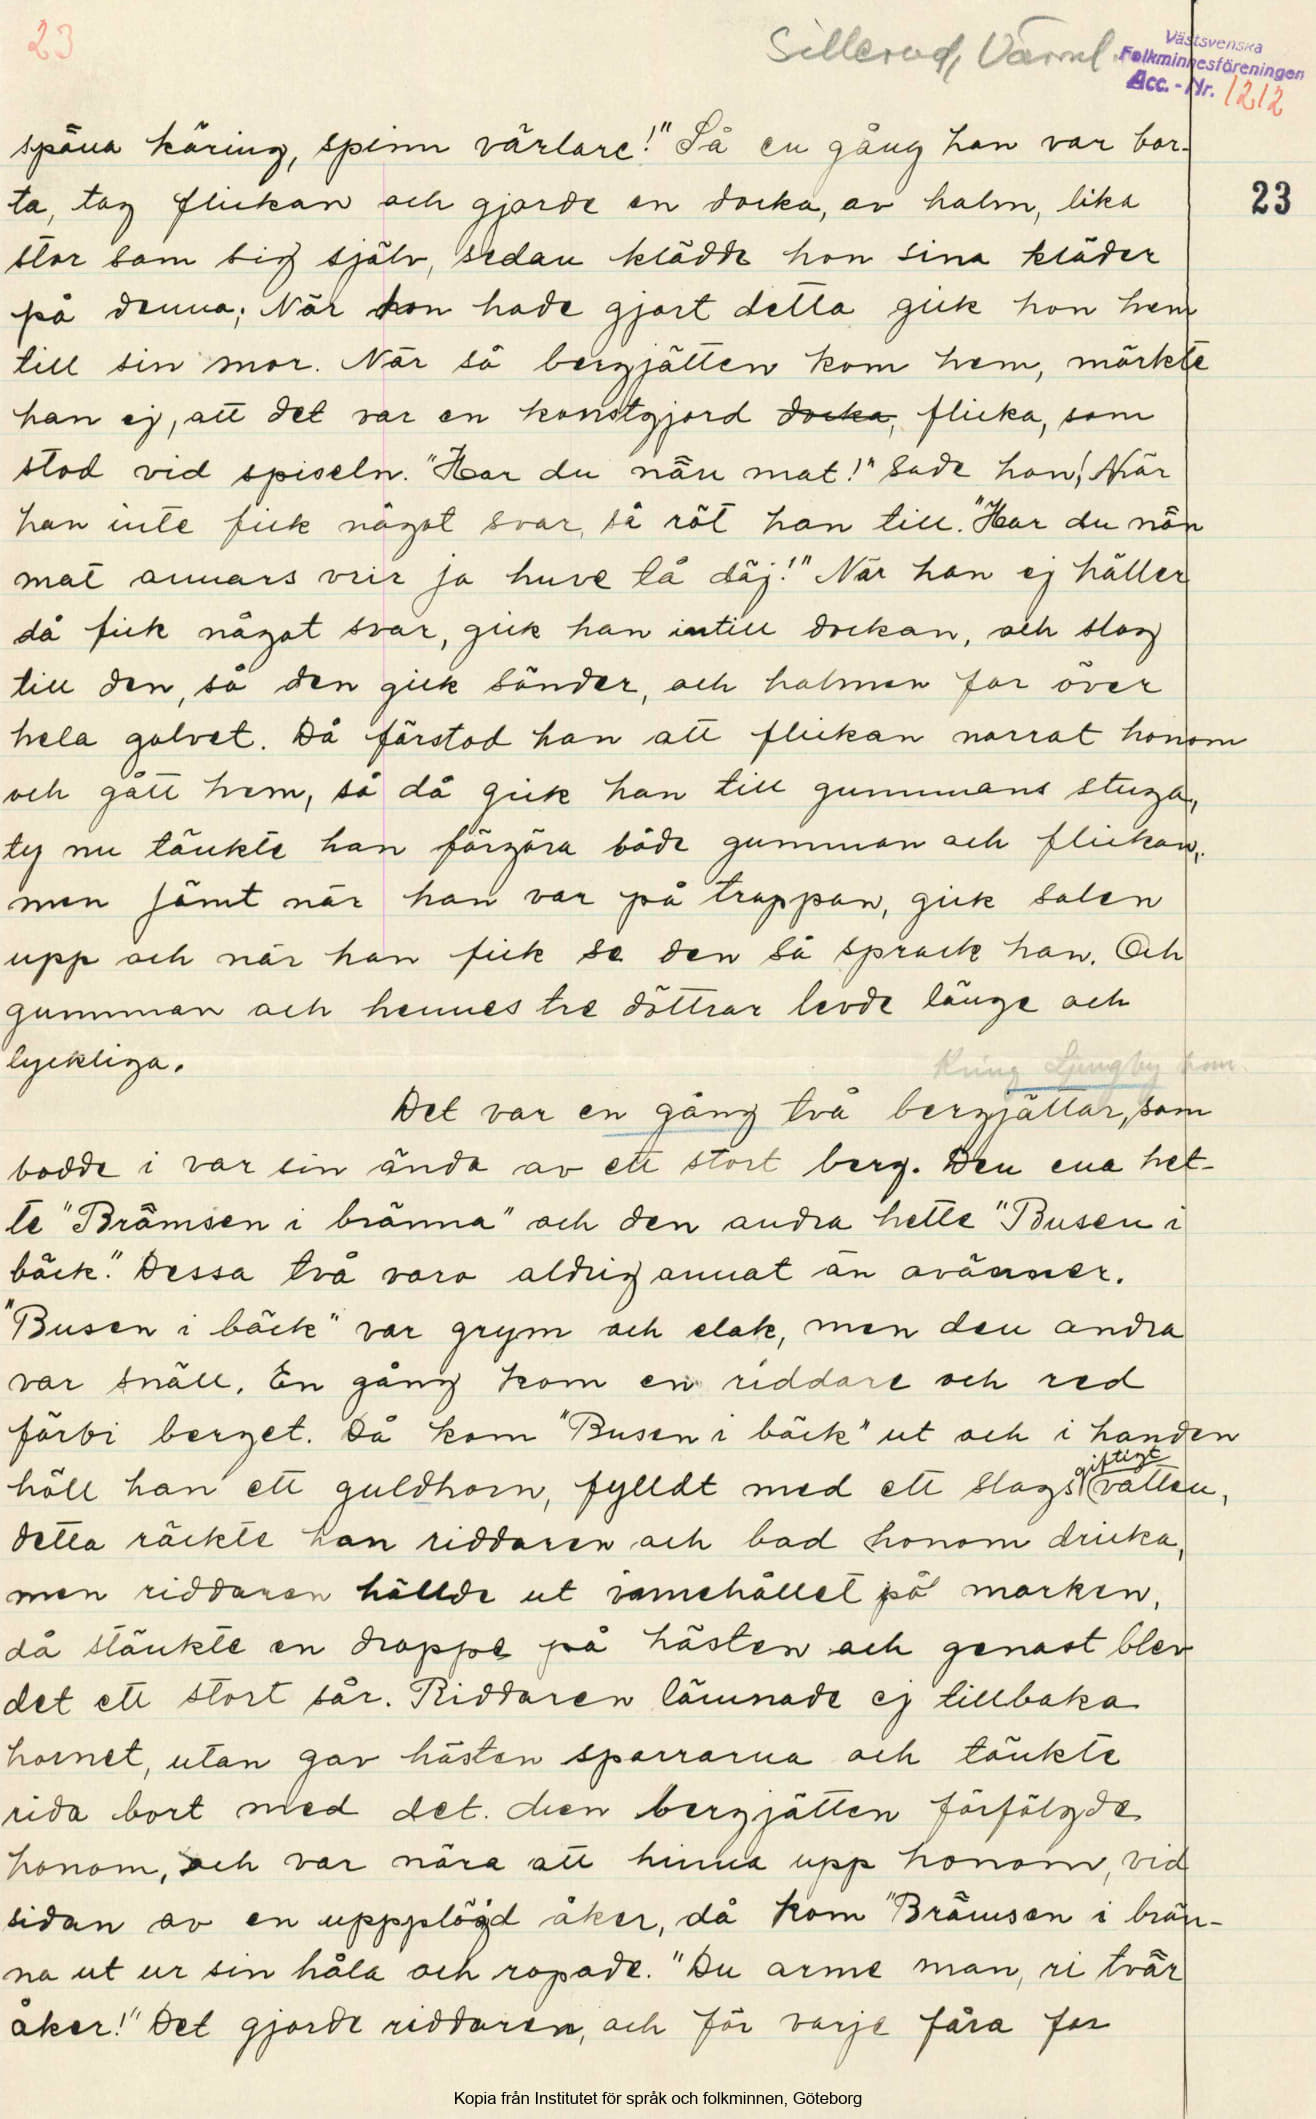 23
Sillerud, Värml.
Västsvenska
Folkminnesföreningen
Acc.-Nr. 1212
23
späna käring, spinn värlare!" Så en gång han var bor-
ta, tag flickan och gjorde en docka, av halm, lika
stor som sig själv, sedan klädde hon sina kläder
på denna; När hon hade gjort detta gick hon hem
till sin mor. När så bergjätten kom hem, märkte
han ej, att det var en konstgjord docka, flicka, som
stod vid spiseln. "Har du nån mat!" sade han! När
han inte fick något svar, så röt han till. "Har du nôn
mat annars vrir ja huve tå däj!" När han ej häller
då fick något svar, gick han intill dockan, och slog
till den, så den gick sönder, och halmen for över
hela golvet. Då förstod han att flickan narrat honom
och gått hem, så då gick han till gummans stuga,
ty nu tänkte han förgöra både gumman och flickan,
men jämt när han var på trappan, gick solen
upp och när han fick se den så sprack han. Och
gumman och hennes tre döttrar levde länge och
lyckliga.
Kring Ljungby horn.
Det var en gång två bergjättar, som
bodde i var sin ända av ett stort berg. Den ena het-
te "Brämsen i bränna" och den andra hette "Busen i
bäck." Dessa två voro aldrig annat än ovänner.
"Busen i bäck" var grym och elak, men den andra
var snäll. En gång kom en riddare och red
förbi berget. Då kom "Busen i bäck" ut och i handen
höll han ett guldhorn, fylldt med ett slags giftigt vatten,
detta räckte han riddaren och bad honom dricka,
men riddaren hällde ut innehållet på marken,
då stänkte en droppe på hästen och genast blev
det ett stort sår. Riddaren lämnade ej tillbaka
hornet, utan gav hästen sporrarna och tänkte
rida bort med det. Men bergjätten förföljde
honom, och var nära att hinna upp honom, vid
sidan av en uppplöjd åker, då kom "Brämsen i brän-
na ut ur sin håla och ropade. "Du arme man, ri tvär
åker!" Det gjorde riddaren, och för varje fåra for
Kopia från Institutet för språk och folkminnen, Göteborg